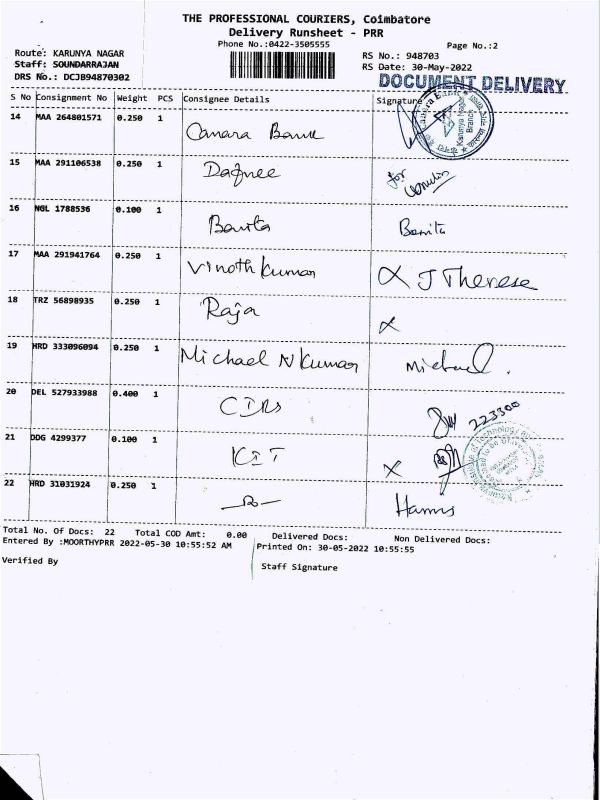 THE PROFESSIONAL COURIERS, Coimbatore
Delivery Runsheet - PRR
Phone No.:0422-3505555
Page No.:2
Route: KARUNYA NAGAR
RS No.: 948703
Staff: SOUNDARRAJAN
RS Date: 30-May-2022
DRS No.: DCJB94870302
DOCUMENT DELIVERY
S No Consignment No Weight PCS Consignee Details Signature
14 MAA 264801571 0.250 1 Canara Bank
Karunya Nagar
Branch
15 MAA 291106538 0.250 1 for
16 NGL 1788536 0.100 1 Banita Banita
17 MAA 291941764 0.250 1 Vinoth kumar J Therese
18 TRZ 56898935 0.250 1 Raja
19 HRD 333096094 0.250 1 Michael N Kumar Michael.
20 DEL 527933988 0.400 1 223300
21 DDG 4299377 0.100 1 KIT X
22 HRD 31031924 0.250 1
Total No. Of Docs: 22 Total COD Amt: 0.00 Delivered Docs: Non Delivered Docs:
Entered By :MOORTHYPRR 2022-05-30 10:55:52 AM Printed On: 30-05-2022 10:55:55
Verified By
Staff Signature